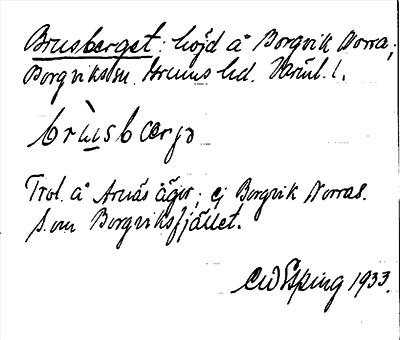 Brusberget: höjd å Borgvik Norra,
Borgviks sn. Grums hd. Värml. l.
brùsbærjə
Trol. å Arnäs ägor; ej Borgvik Norras.
S. om Borgviksfjället.
CW Esping 1933.